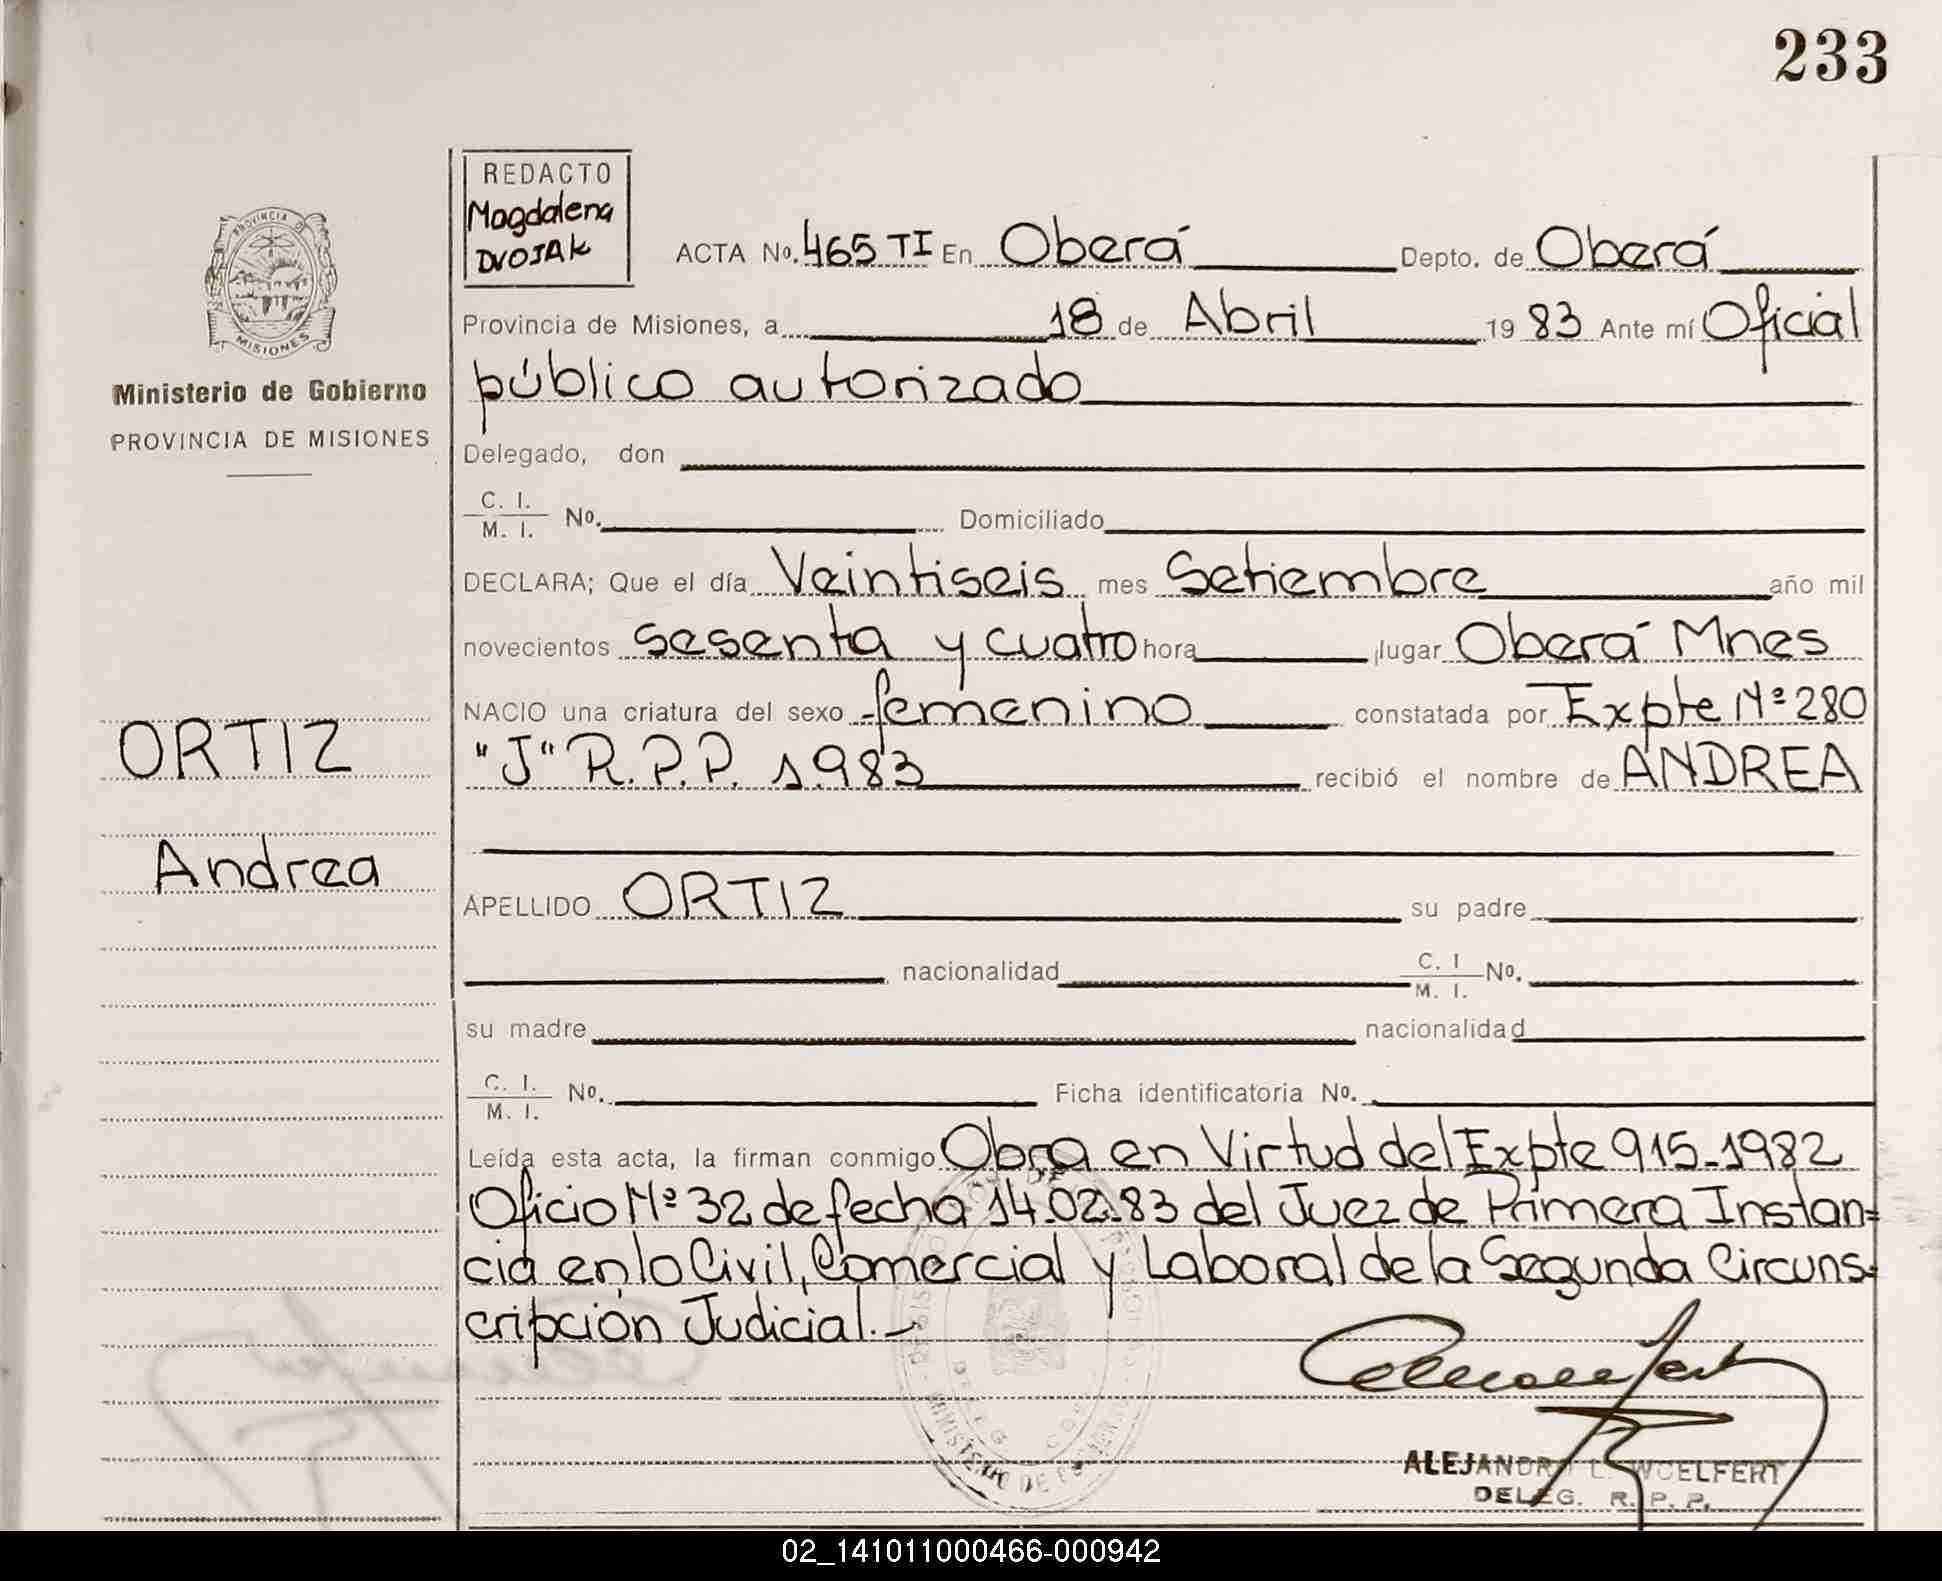 233
REDACTO
Magdalena
DVOJAK
ACTA No. 465 TI En Oberá Depto. de Oberá
Provincia de Misiones, a 18 de Abril 19 83 Ante mí Oficial
público autorizado
PROVINCIA DE
MISIONES
Ministerio de Gobierno
PROVINCIA DE MISIONES
Delegado, don
C. I.
M. I. No. Domiciliado
DECLARA; Que el día Veintiseis mes Setiembre año mil
novecientos sesenta y cuatro hora lugar Oberá Mnes
NACIO una criatura del sexo femenino constatada por Expte Nº 280
"J" R.P.P. 1.983 recibió el nombre de ANDREA
ORTIZ
Andrea
APELLIDO ORTIZ su padre
nacionalidad C. I
M. I. No.
su madre nacionalidad
C. I.
M. I. No. Ficha identificatoria No.
Leída esta acta, la firman conmigo Obra en Virtud del Expte 915-1982
Oficio Nº 32 de fecha 14.02.83 del Juez de Primera Instan=
cia en lo Civil, Comercial y Laboral de la Segunda Circuns=
cripción Judicial.-
MINISTERIO DE GOBIERNO
ALEJANDRO L. WOELFERT
DELEG. R. P. P.
02_141011000466-000942